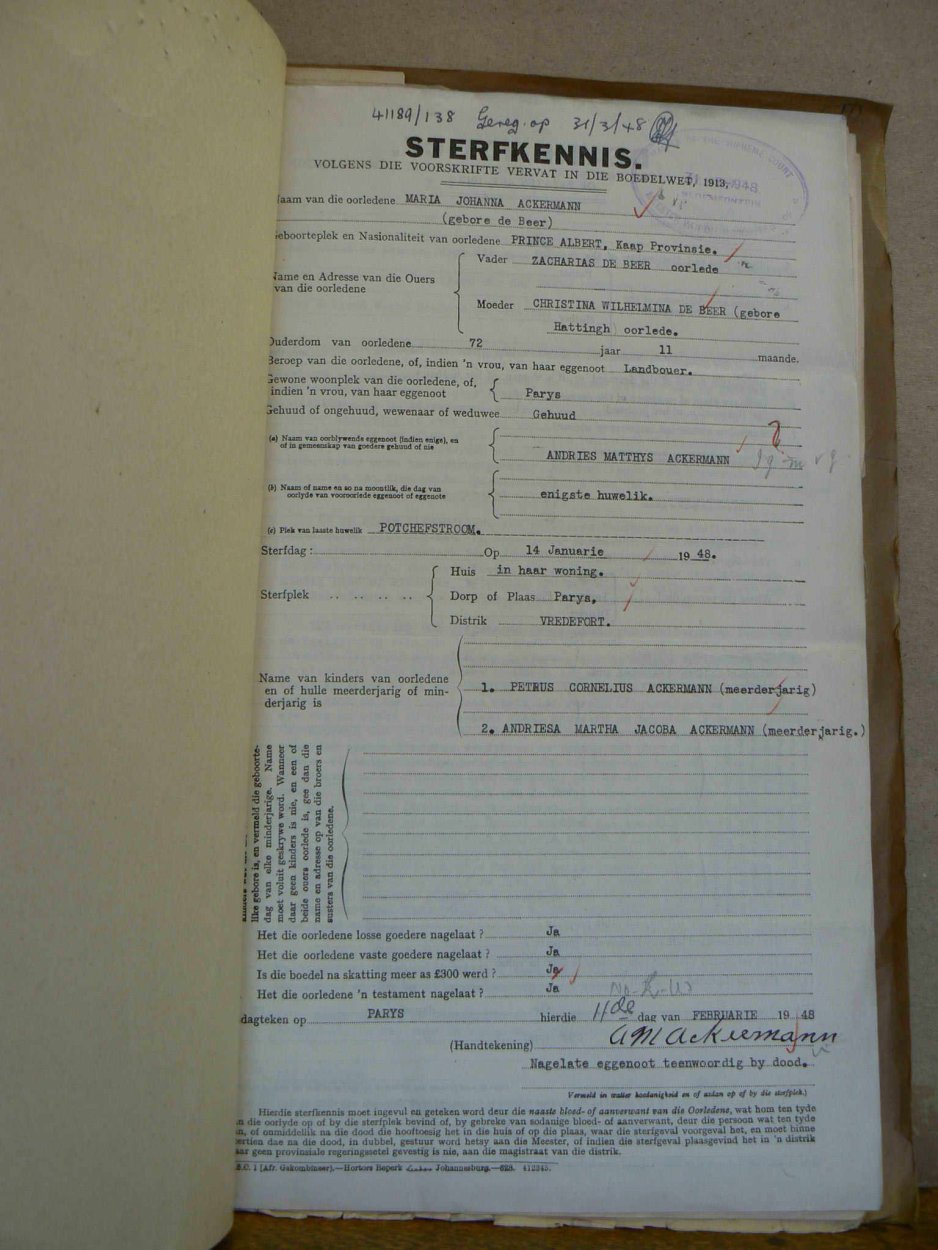 41189/138 Gereg. op 31/3/48
STERFKENNIS.
VOLGENS DIE VOORSKRIFTE VERVAT IN DIE BOEDELWET, 1913.
Naam van die oorledene MARIA JOHANNA ACKERMANN
(gebore de Beer)
Geboorteplek en Nasionaliteit van oorledene PRINCE ALBERT, Kaap Provinsie.
Name en Adresse van die Ouers van die oorledene
Vader ZACHARIAS DE BEER oorlede
Moeder CHRISTINA WILHELMINA DE BEER (gebore
Hattingh oorlede.
Ouderdom van oorledene 72 jaar 11 maande.
Beroep van die oorledene, of, indien 'n vrou, van haar eggenoot Landbouer.
Gewone woonplek van die oorledene, of,
indien 'n vrou, van haar eggenoot Parys
Gehuud of ongehuud, wewenaar of weduwee Gehuud
(a) Naam van oorblywende eggenoot (indien enige), en
of in gemeenskap van goedere gehuud of nie
ANDRIES MATTHYS ACKERMANN
(b) Naam of name en so na moontlik, die dag van
oorlyde van vooroorlede eggenoot of eggenote
enigste huwelik.
(c) Plek van laaste huwelik POTCHEFSTROOM.
Sterfdag : Op 14 Januarie 19 48.
Sterfplek .. .. .. ..
Huis in haar woning.
Dorp of Plaas Parys,
Distrik VREDEFORT.
Name van kinders van oorledene
en of hulle meerderjarig of min-
derjarig is
1. PETRUS CORNELIUS ACKERMANN (meerderjarig)
2. ANDRIESA MARTHA JACOBA ACKERMANN (meerderjarig.)
like gebore is, en vermeld die geboorte-
dag van elke minderjarige. Name
moet voluit geskrywe word. Wanneer
daar geen kinders is nie, en een of
beide ouers oorlede is, gee dan die
name en adresse op van die broers en
susters van die oorledene.
Het die oorledene losse goedere nagelaat ? Ja
Het die oorledene vaste goedere nagelaat ? Ja
Is die boedel na skatting meer as £300 werd ? Ja
Het die oorledene 'n testament nagelaat ? Ja
dagteken op PARYS hierdie 11de dag van FEBRUARIE 19 48
(Handtekening) AMAckermann
Nagelate eggenoot teenwoordig by dood.
Vermeld in watter hoedanigheid en of asdan op of by die sterfplek.)
Hierdie sterfkennis moet ingevul en geteken word deur die naaste bloed- of aanverwant van die Oorledene, wat hom ten tyde
die oorlyde op of by die sterfplek bevind of, by gebreke van sodanige bloed- of aanverwant, deur die persoon wat ten tyde
of onmiddelik na die dood die hooftoesig het in die huis of op die plaas, waar die sterfgeval voorgeval het, en moet binne
veertien dae na die dood, in dubbel, gestuur word hetsy aan die Meester, of indien die sterfgeval plaasgevind het in 'n distrik
waar geen provinsiale regeringsetel gevestig is nie, aan die magistraat van die distrik.
B.C. 1 [Afr. Gekombineer).—Hortors Beperk Johannesburg.—628. 412345.